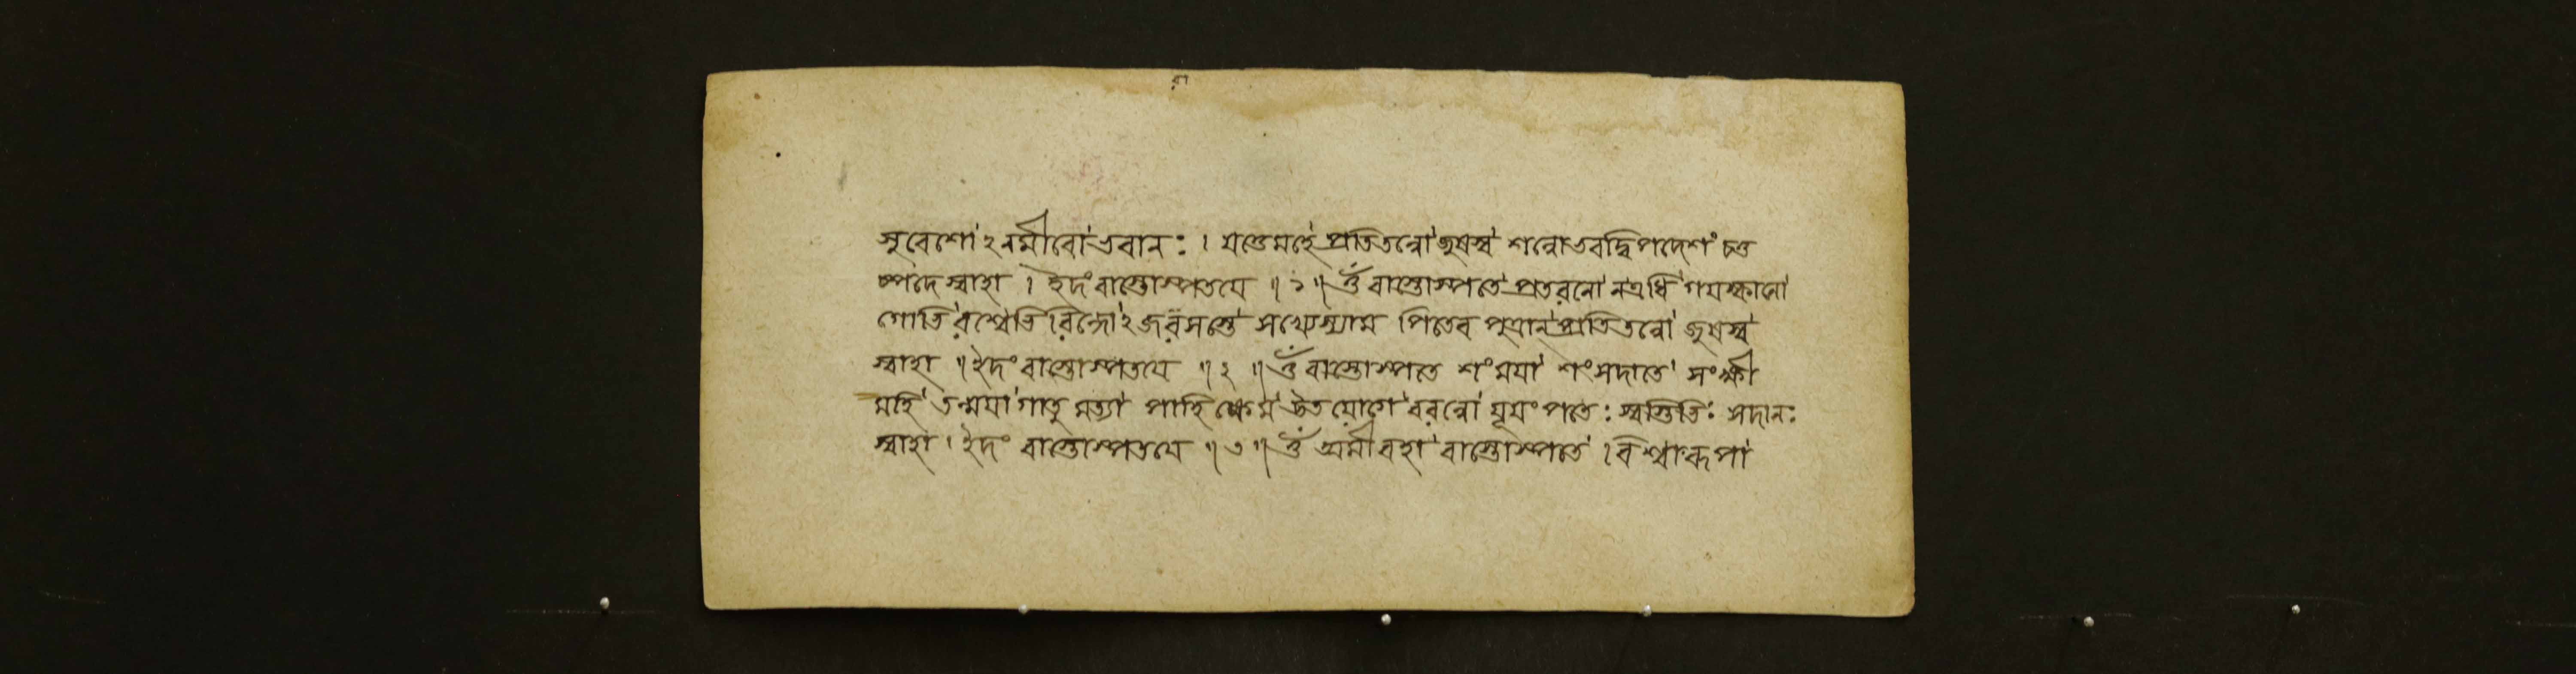 সুবেশো ঽনমীবো ভবানঃ । যত্তেমহে প্রতিতন্নো জুষস্ব শন্নোভবদ্বিপদেশং চতু
ষ্পদে স্বাহা । ইদং বাস্তোস্পতয়ে ॥ ১ ॥ ওঁ বাস্তোস্পতে প্রতরনো নএধি গয়স্ফানো
গোভিরশ্বেভিরিন্দো ঽজরসস্তে সখ্যেস্যাম পিতেব পুত্রান্ প্রতিতন্নো জুষস্ব
স্বাহা ॥ ইদং বাস্তোস্পতয়ে ॥ ২ ॥ ওঁ বাস্তোস্পতে শংময়া শংসদাতে সংক্ষী
মহি তন্ময়া গাতু মত্যা পাহিক্ষেম উত যোগে বরন্নো যূয়ং পাতেঃ স্বস্তিভিঃ সদানঃ
স্বাহা । ইদং বাস্তোস্পতয়ে ॥ ৩ ॥ ওঁ অমীবহা বাস্তোস্পতে । বিশ্বারূপা